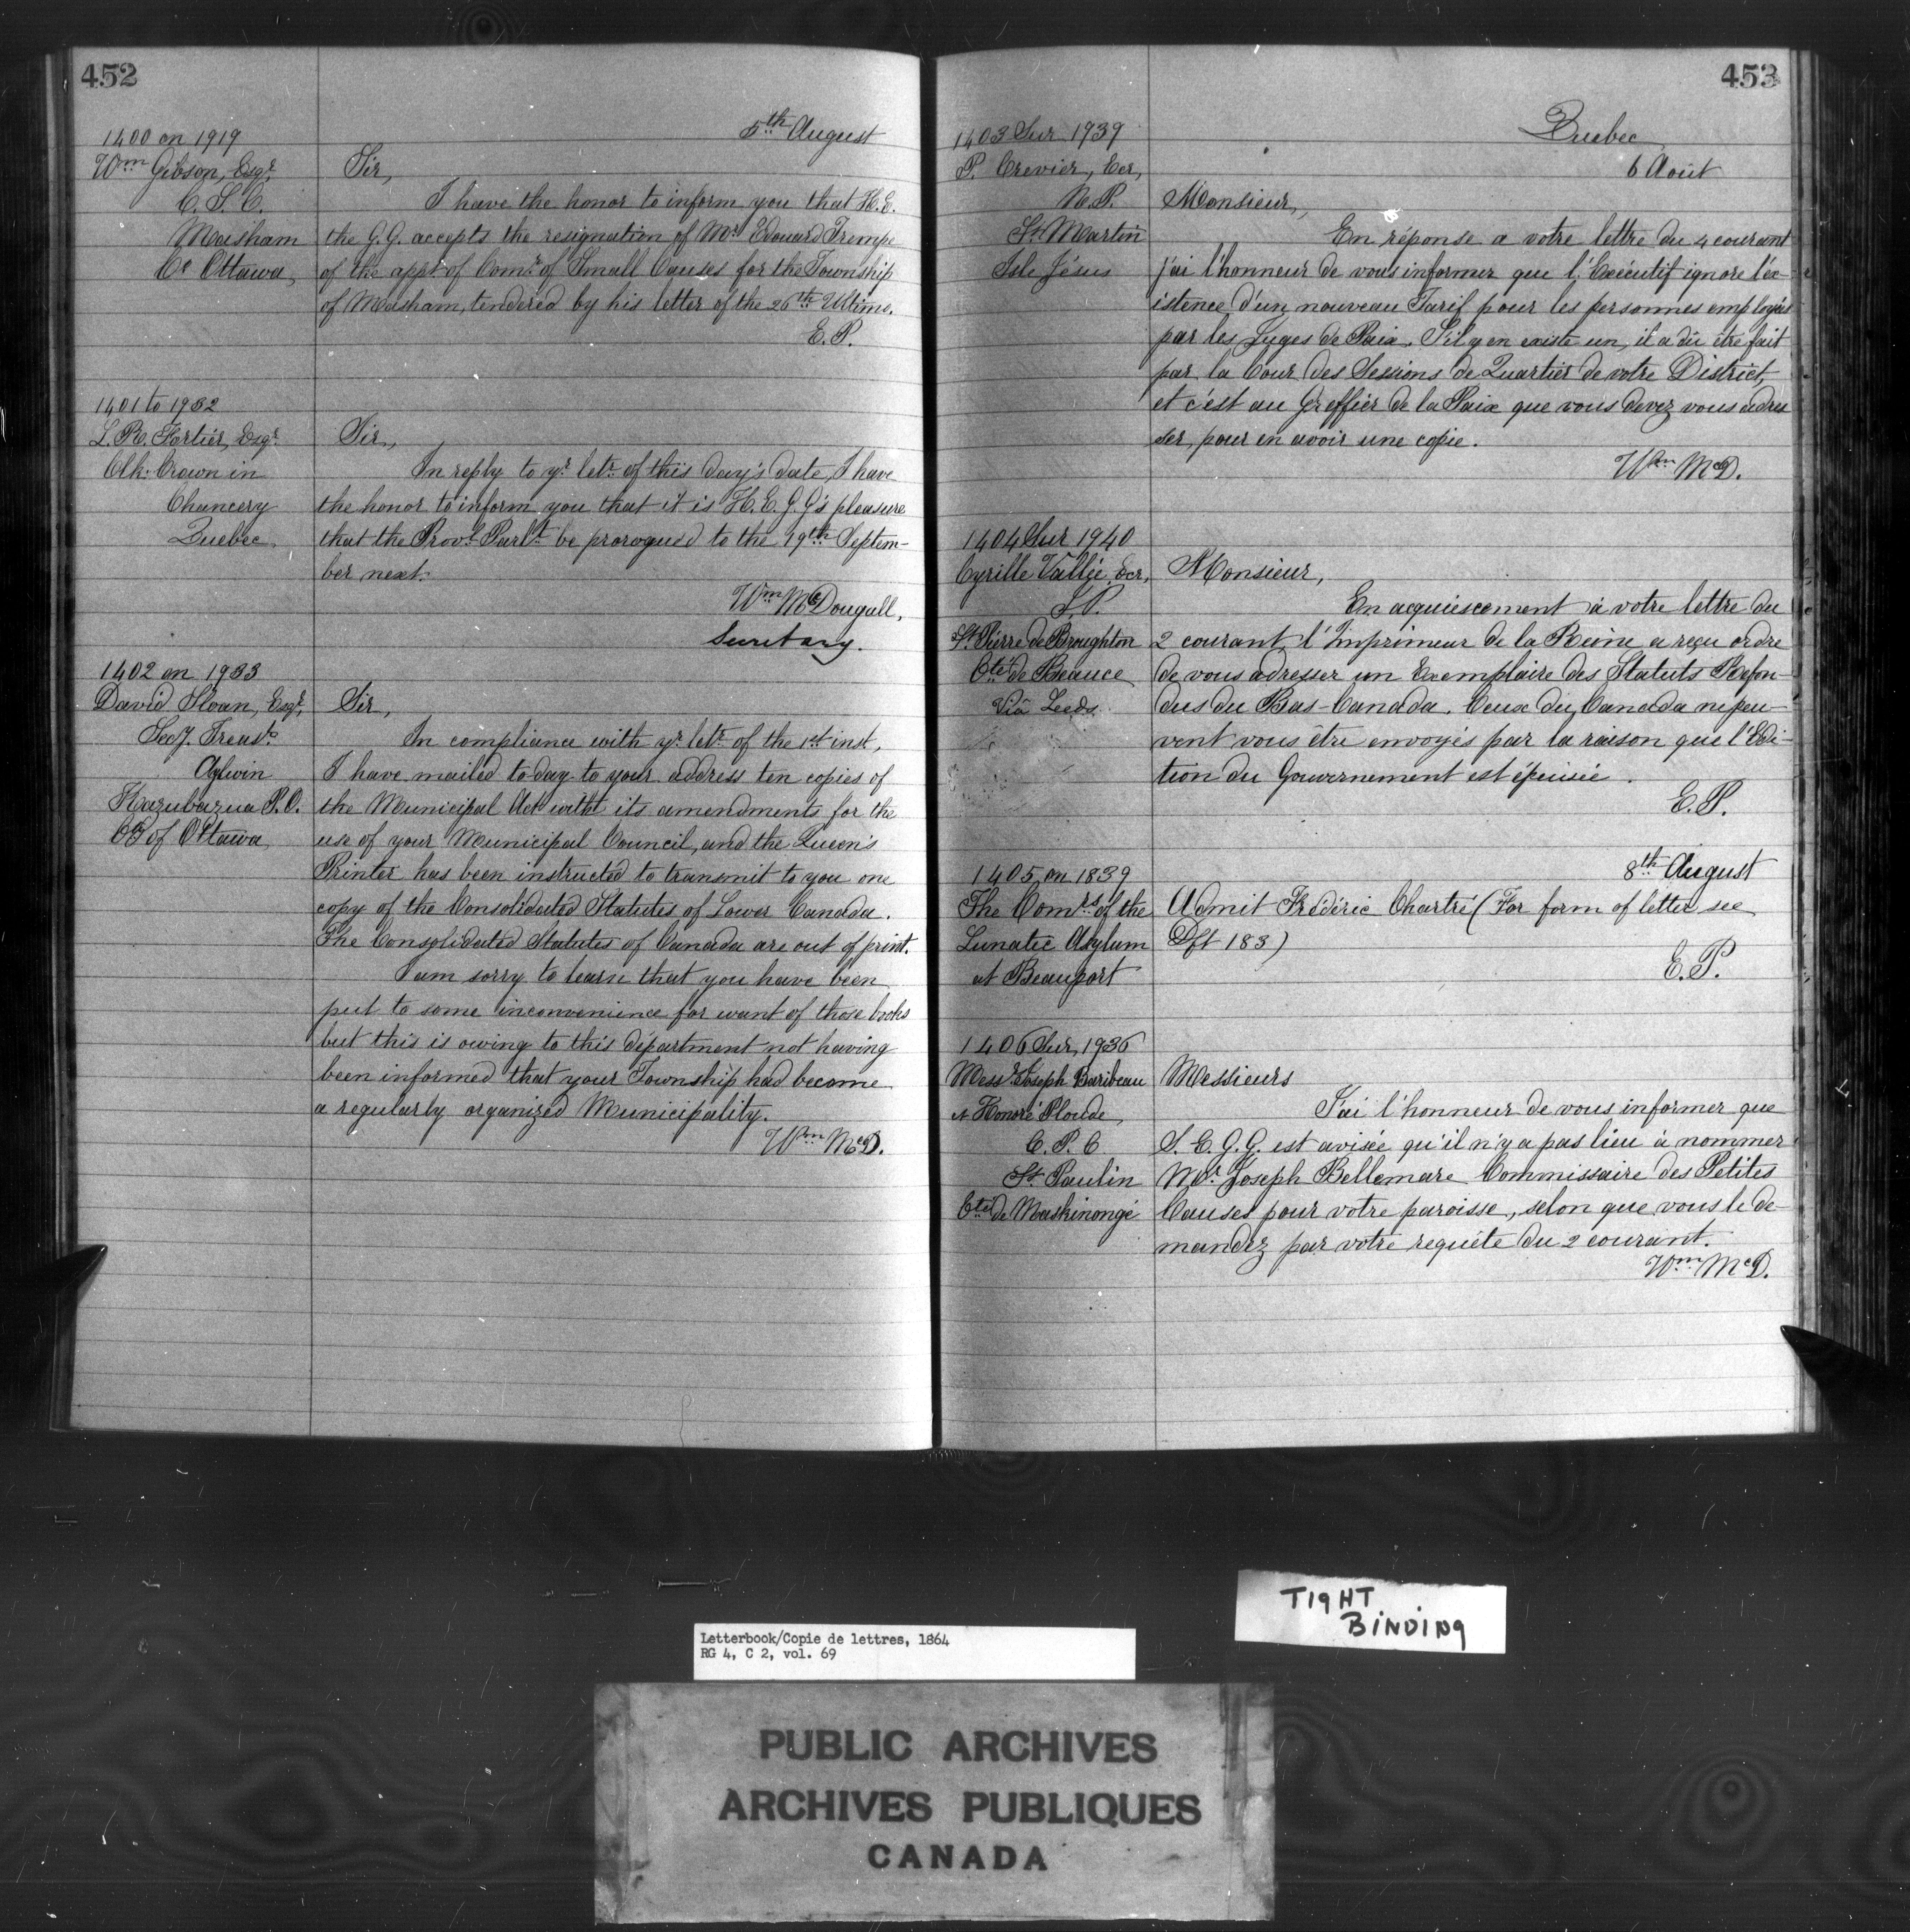 452
5th August
1400 on 1919
Wm Gibson, Esqr,
C. S. C.
Masham
Co Ottawa,
Sir,
I have the honor to inform you that H.E.
the G.G. accepts the resignation of Mr Edouard Trempe
of the appt of Comr of Small Causes for the Township
of Masham, tendered by his letter of the 26th Ultimo.
E. P.
1401 to 1932
L. R. Fortier, Esqr
Clk. Crown in
Chancery
Quebec.
Sir,
In reply to yr letr of this day's date, I have
the honor to inform you that it is H. E. G. G's pleasure
that the Provl Parlt be prorogued to the 19th Septem-
ber next.
Wm McDougall,
Secretary.
1402 on 1933
David Sloan, Esqr,
Secy. Treasr
Aylwin
Kazubazua P. O.
Co of Ottawa
Sir,
In compliance with yr letr of the 1st inst,
I have mailed to-day to your address ten copies of
the Municipal Act with its amendments for the
use of your Municipal Council, and the Queen's
Printer has been instructed to transmit to you one
copy of the Consolidated Statutes of Lower Canada.
The Consolidated Statutes of Canada are out of print.
I am sorry to learn that you have been
put to some inconvenience for want of those books
but this is owing to this départment not having
been informed that your Township had become
a regularly organized Municipality.
Wm McD.
453
Quebec
6 Août
1403 Sur 1939
P. Crevier, Ecr,
N. P.
St Martin
Isle Jésus
Monsieur,
En réponse a votre lettre du 4 courant
j'ai l'honneur de vous informer que l'Exécutif ignore l'ex-
istence d'un nouveau Tarif pour les personnes employés
par les Juges de Paix. S'il y en existe un, il a dû être fait
par la Cour des Sessions de Quartier de votre District,
et c'est au Greffier de la Paix que vous devez vous adres
ser, pour en avoir une copie.
Wm McD.
1404 Sur 1940
Cyrille Vallée, Ecr,
J. P.
St Pierre de Broughton
Cté de Beauce
Viâ Leeds
Monsieur,
En acquiescement à votre lettre du
2 courant l'Imprimeur de la Reine a reçu ordre
de vous adresser un Exemplaire des Statuts Refon-
dus du Bas-Canada. Ceux du Canada ne peu-
vent vous être envoyés par la raison que l'Edi-
tion du Gouvernement est épuisée.
E. P.
8th August
1405 on 1839
The Comrs of the
Lunatic Asylum
at Beauport
Admit Frédéric Chartré (For form of letter see
Dft 183)
E. P.
1406 Sur 1936
Messrs Joseph Baribeau
et Honoré Ploude,
C. P. C
St Paulin
Cté de Maskinongé
Messieurs
J'ai l'honneur de vous informer que
S. E. G. G. est avisée qu'il n'y a pas lieu à nommer
Mr Joseph Bellemare Commissaire des Petites
Causes pour votre paroisse, selon que vous le de-
mandez par votre requéte du 2 courant.
Wm McD.
TIGHT
BINDING
Letterbook/Copie de lettres, 1864
RG 4, C 2, vol. 69
PUBLIC ARCHIVES
ARCHIVES PUBLIQUES
CANADA